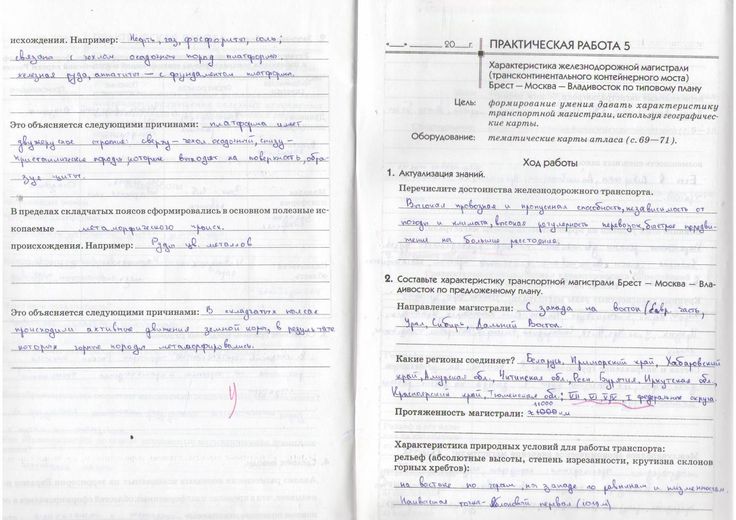 исхождения. Например: Нефть, газ, фосфориты, соль;
связано с чехлом осадочных пород платформы.
железная руда, аппатиты – с фундаментом платформы.
Это объясняется следующими причинами: платформа имеет
двухъярусное строение: сверху – чехол осадочный, снизу –
кристаллические породы, которые выходят на поверхность, обра-
зуя щиты.
В пределах складчатых поясов сформировались в основном полезные ис-
копаемые метаморфического происх.
происхождения. Например: Руды цв. металлов
Это объясняется следующими причинами: В складчатых поясах
происходили активные движения земной коры, в результате
которых горные породы метаморфировались.
«__» ______ 20__ г.
ПРАКТИЧЕСКАЯ РАБОТА 5
Характеристика железнодорожной магистрали
(трансконтинентального контейнерного моста)
Брест — Москва — Владивосток по типовому плану
Цель: формирование умения давать характеристику
транспортной магистрали, используя географичес-
кие карты.
Оборудование: тематические карты атласа (с. 69—71).
Ход работы
1. Актуализация знаний.
Перечислите достоинства железнодорожного транспорта.
Высокая провозная и пропускная способность, независимость от
погоды и климата, высокая регулярность перевозок, быстрое передви-
жение на большие расстояния.
2. Составьте характеристику транспортной магистрали Брест — Москва — Вла-
дивосток по предложенному плану.
Направление магистрали: С запада на восток (Евр. часть,
Урал, Сибирь, Дальний Восток.
Какие регионы соединяет? Беларусь, Приморский край, Хабаровский
край, Амурская обл., Читинская обл, Респ Бурятия, Иркутская обл.,
Красноярский край, Тюменская обл.; федеральные округа.
11000
Протяженность магистрали: км
Характеристика природных условий для работы транспорта:
рельеф (абсолютные высоты, степень изрезанности, крутизна склонов
горных хребтов):
на востоке по горам, на западе по равнинам и низменностям.
Наивысшая точка – перевал